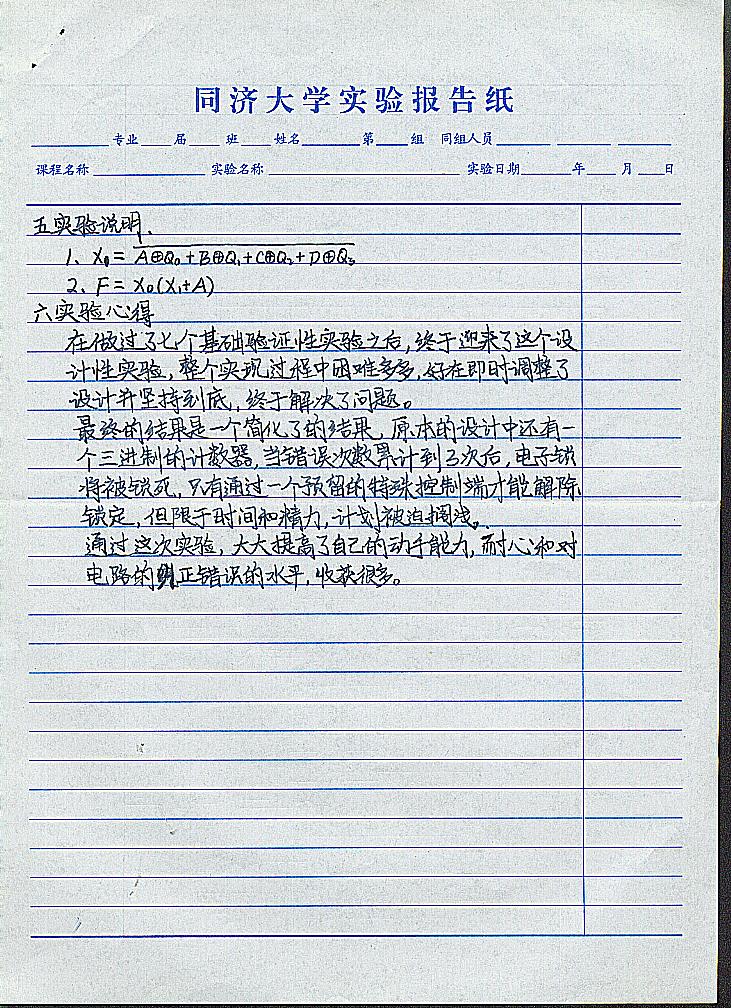 同济大学实验报告纸
专业 届 班 姓名 第 组 同组人员
课程名称 实验名称 实验日期 年 月 日
五实验说明、
1、X₀ = A⊕Q₀+B⊕Q₁+C⊕Q₂+D⊕Q₃
2、F = X₀(X₁+A)
六实验心得
在做过了七个基础验证性实验之后,终于迎来了这个设
计性实验,整个实现过程中困难多多,好在即时调整了
设计并坚持到底,终于解决了问题。
最终的结果是一个简化了的结果,原本的设计中还有一
个三进制的计数器,当错误次数累计到3次后,电子锁
将被锁死,只有通过一个预留的特殊控制端才能解除
锁定,但限于时间和精力,计划被迫搁浅。
通过这次实验,大大提高了自己的动手能力,耐心和对
电路的 正错误的水平,收获很多。